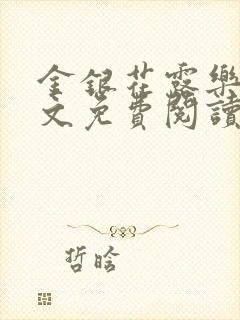 金银花露樂
文免費閱讀
哲晗